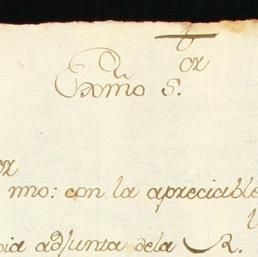 Exmo S.or
or
mo: con la apreciable
pia adjunta dela R.